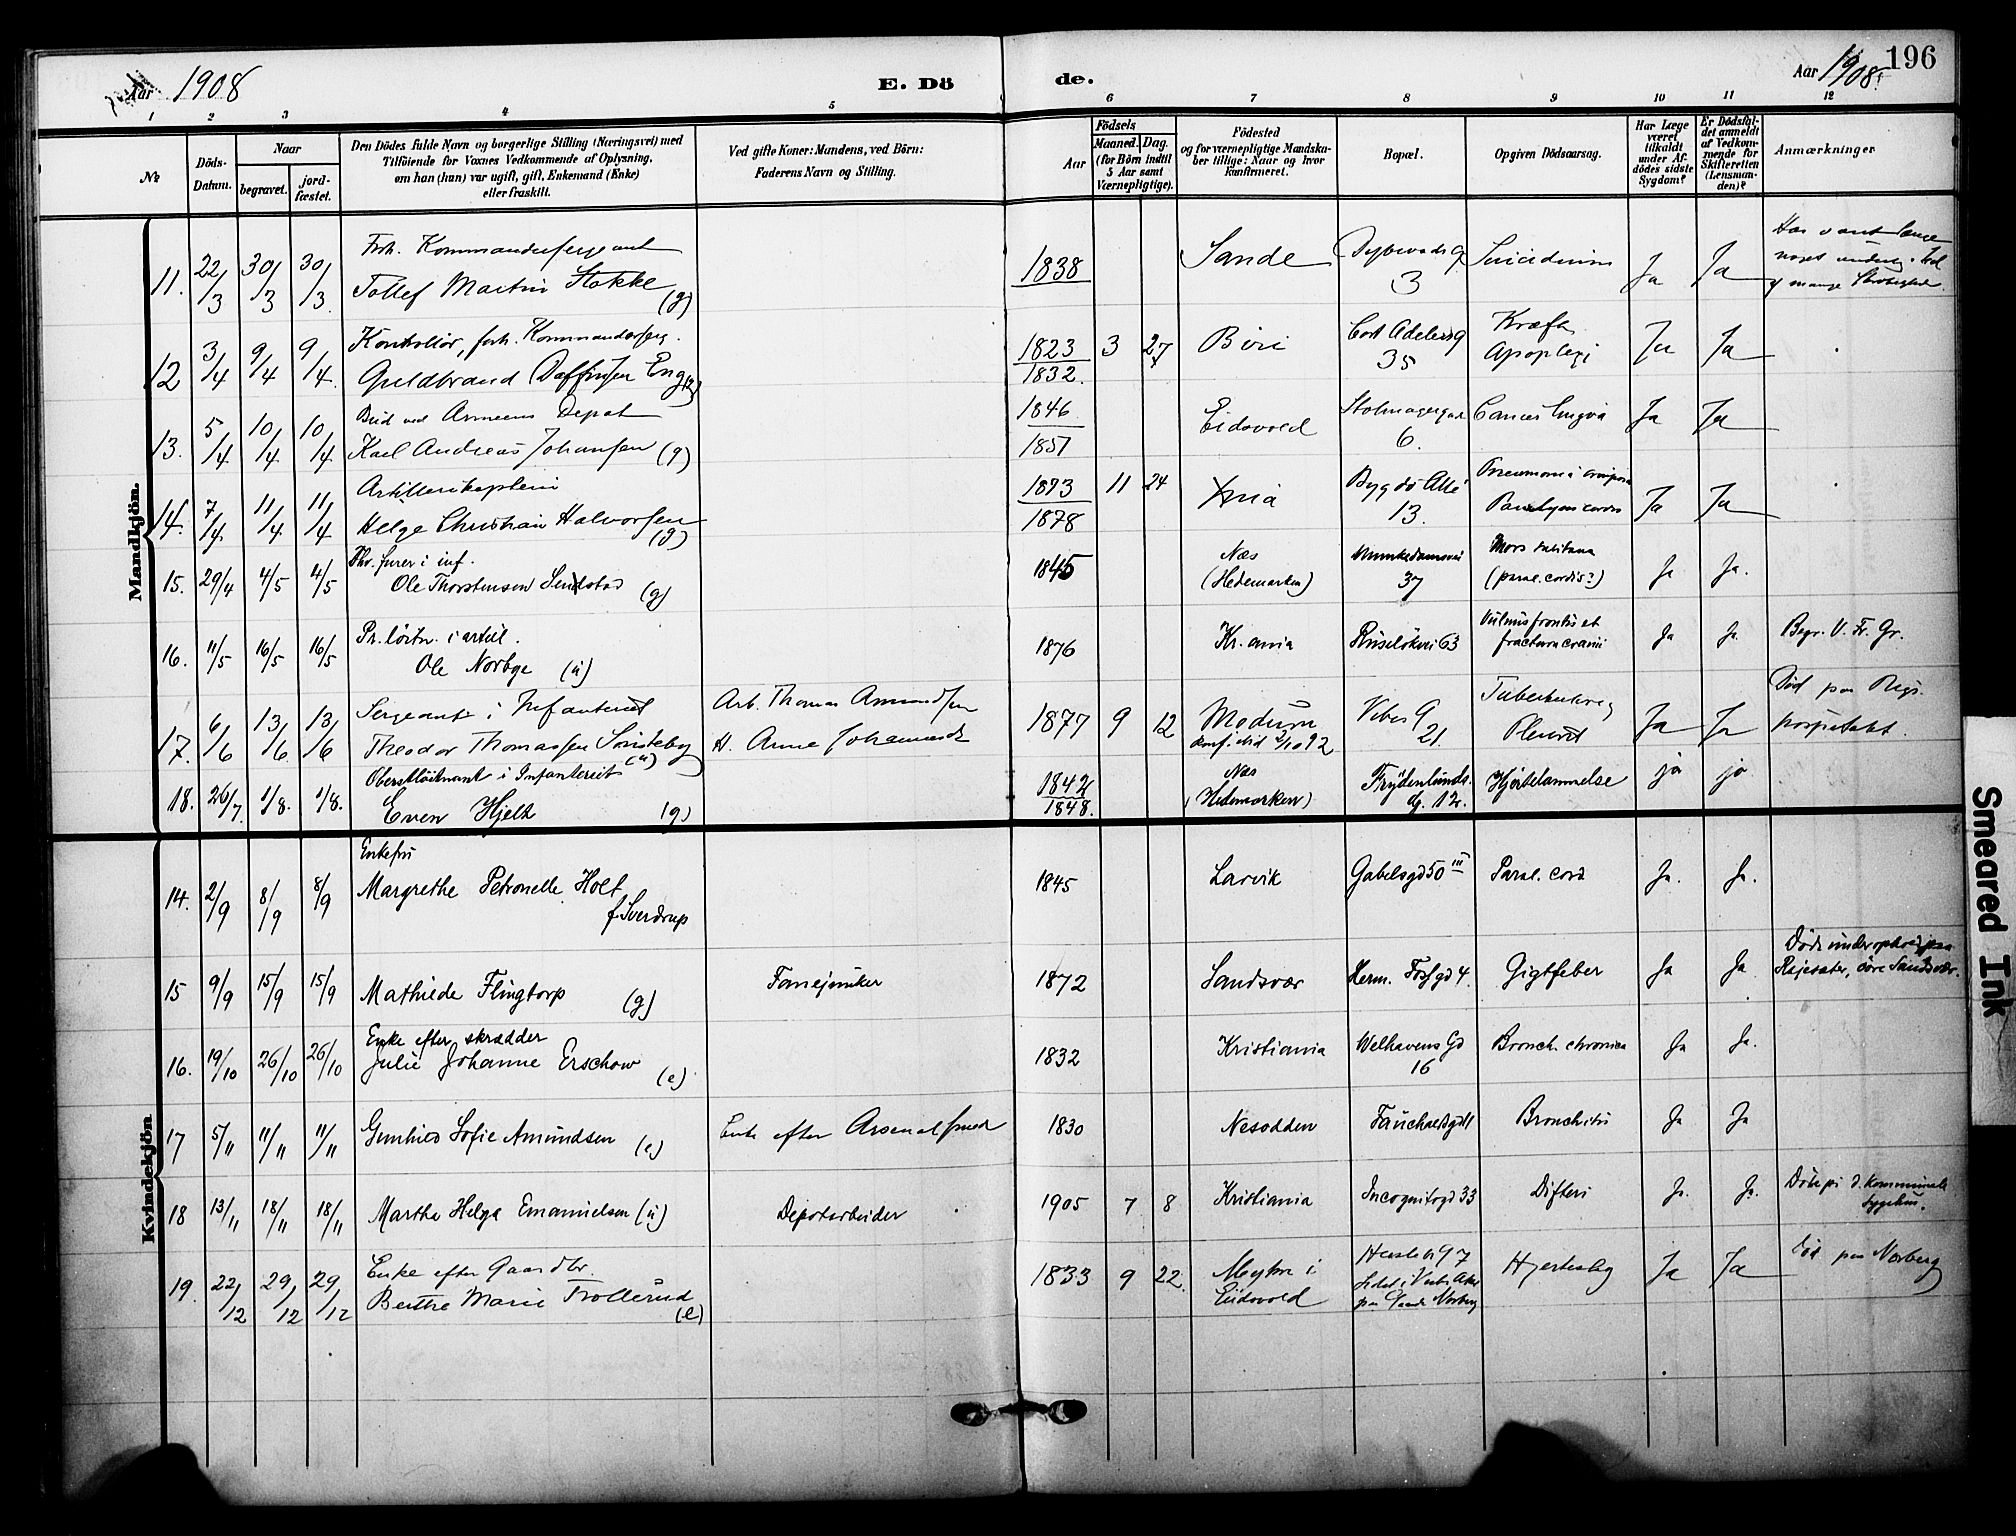 196
Aar 1908
E. Dö de.
Aar 1908.
1 2 3 4 5 6 7 8 9 10 11 12
№
Döds-Datum.
Naar
begravet.
jord-fæstet.
Den Dödes fulde Navn og borgerlige Stilling (Næringsvei) med
Tilföiende for Voxnes Vedkommende af Oplysning,
om han (hun) var ugift, gift, Enkemand (Enke)
eller fraskilt.
Ved gifte Koner: Mandens, ved Börn:
Faderens Navn og Stilling.
Födsels
Aar
Maaned. Dag.
(for Börn indtil
5 Aar samt
Værnepligtige).
Födested
og for værnepligtige Mandska-
ber tillige: Naar og hvor
konfirmeret.
Bopæl.
Opgiven Dödsaarsag.
Har Læge
været
tilkaldt
under Af-
dödes sidste
Sygdom?
Er Dödsfal-
det anmeldt
af Vedkom-
mende for
Skifteretten
(Lensman-
den)?
Anmærkninger
Mandkjön.
Forh. Kommandersergeant
11. 22/3 30/3 30/3 Tollef Martin Stokke (g) 1838 Sande 3 Suicidium Ja Ja
Kontrollör, forh. Kommandersferg.
12 3/4 9/4 9/4 Guldbrand Daffinsen Eng 1823 1832 3 27 Biri Cort Adelersg 35 Kræft Apoplexi Ja Ja
Bud ved Armeens Depot
13. 5/4 10/4 10/4 Karl Andreas Johansen (g) 1846 1851 Eidsvold 6. Cancer Ja Ja
Artillerikaptein
14. 7/4 11/4 11/4 Helge Christian Halvorsen (g) 1893 1878 11 24 Xnia Bygdö Allé 13. Pneumonia Paralysis cordis Ja Ja
furer i inf.
15. 29/4 4/5 4/5 Ole Thorstensen (g) 1845 Næs (Hedemarken) Munkedamsvei 37 Mors subitana (paral. cordis?) Ja Ja.
Pr. löitn. i artill.
16. 11/5 16/5 16/5 Ole Norbye (u) 1876 Kr.ania Ruselökvei 63 Vulnus frontis et fractura cranii Ja Ja Begr. V. Fr. Gr.
Sergeant i Infanteriet
17. 6/6 13/6 13/6 Theodor Thomassen (u) Arb. Thomas Amundsen H. Anne Johannesd. 1877 9 12 Modum 2/10 92 Vibes G 21. Pleurit Ja Ja Död paa Rigs-hospitalet.
Oberstlöitnant i Infanteriet
18. 26/7. 1/8. 1/8. Even Hjelt (g) 1842 1848. Næs (Hedemarken) Frydenlunds. g. 12. Hjertelammelse ja ja
Kvindekjön
Enkefru
14. 2/9 8/9 8/9 Margrethe Petronelle Holt f. Sverdrup 1845 Larvik Gabelsgd 50 III Paral. cord Ja. Ja.
15 9/9 15/9 15/9 Mathilde Flingtorp (g) Fanejunker 1872 Sandsvær Herm. Fossgd 4. Gigtfeber Ja Ja Döde under ophold paa
Enke efter skrædder
16. 19/10 26/10 26/10 Julie Johanne Erschow (e) 1832 Kristiania Welhavens Gd 16 Bronch. chronica Ja Ja.
17 5/11 11/11 11/11 Gunhild Sofie Amundsen (e) Enke efter Arsenalsmed 1830 Nesodden Bronchitis Ja Ja
18 13/11 18/11 18/11 Marthe Helga Emanuelsen (u) Depotarbeider 1905 7 8 Kristiania Incognitogd 33 Difteri Ja. Ja. Döde på d. kommunale Sygehus.
Enke efter Gaardbr.
19. 22/12 29/12 29/12 Berthe Marie Trollerud (e) 1833 9 22. i Eidsvold G 7 i Vestre Aker paa Gaard Norberg Hjerteslag Ja Ja död paa Norberg
Smeared Ink